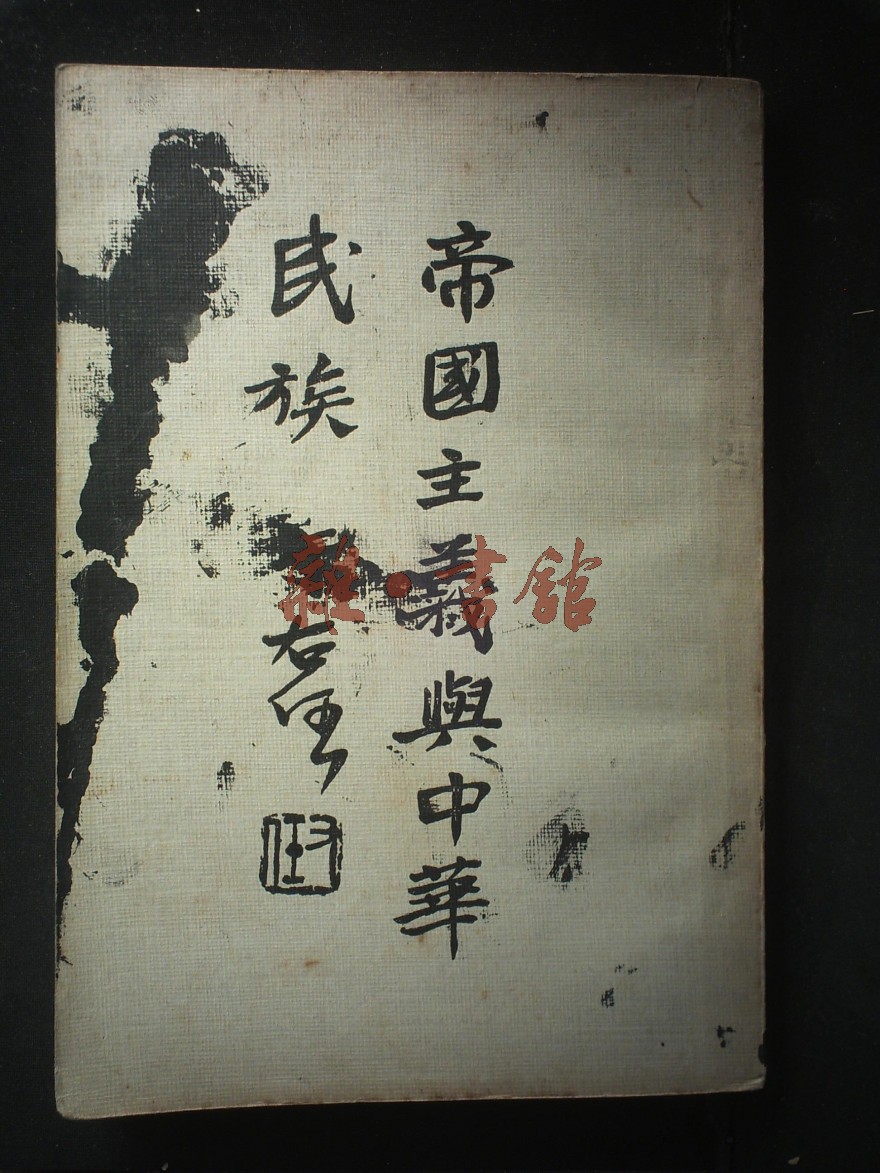 帝國主義與中華
民族
右任
雜·書館